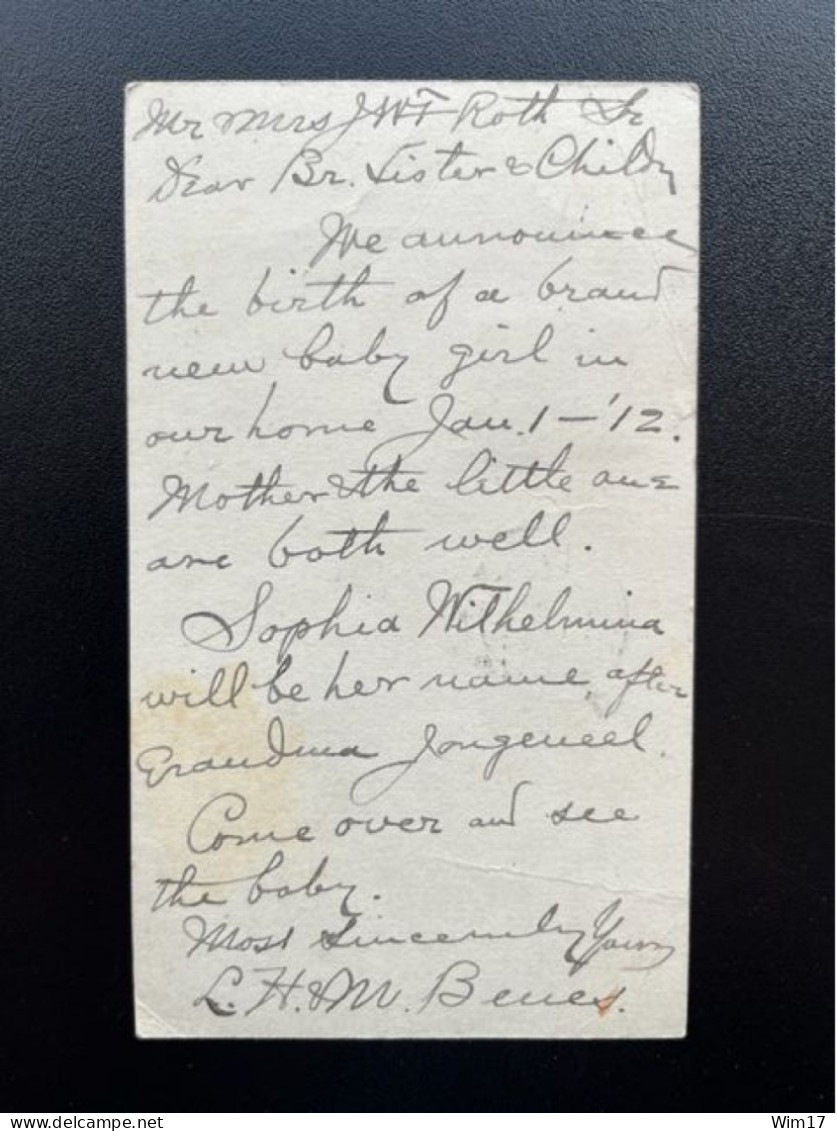 Mr Mrs J W F Roth Sr
Dear Br. Sister & Childn
We announce
the birth of a brand
new baby girl in
our home Jan. 1 - '12.
Mother & the little one
are both well.
Sophia Wilhelmina
will be her name, after
Grandma Jongeneel.
Come over and see
the baby.
Most Sincerely Yours
L. H. & M. Benes.
delcampe.net
Wim17